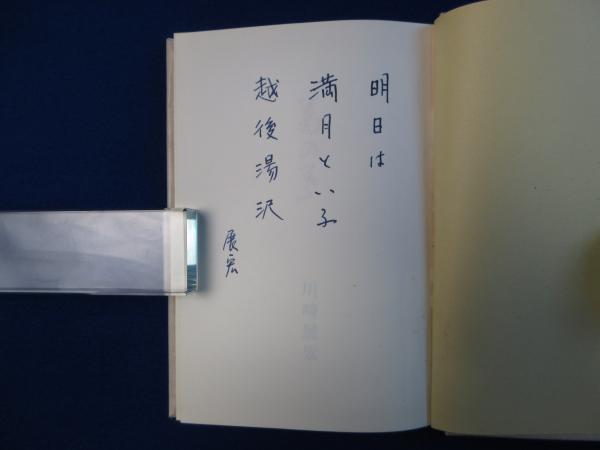 明日は
満月といふ
越後湯沢
展宏
川崎展宏